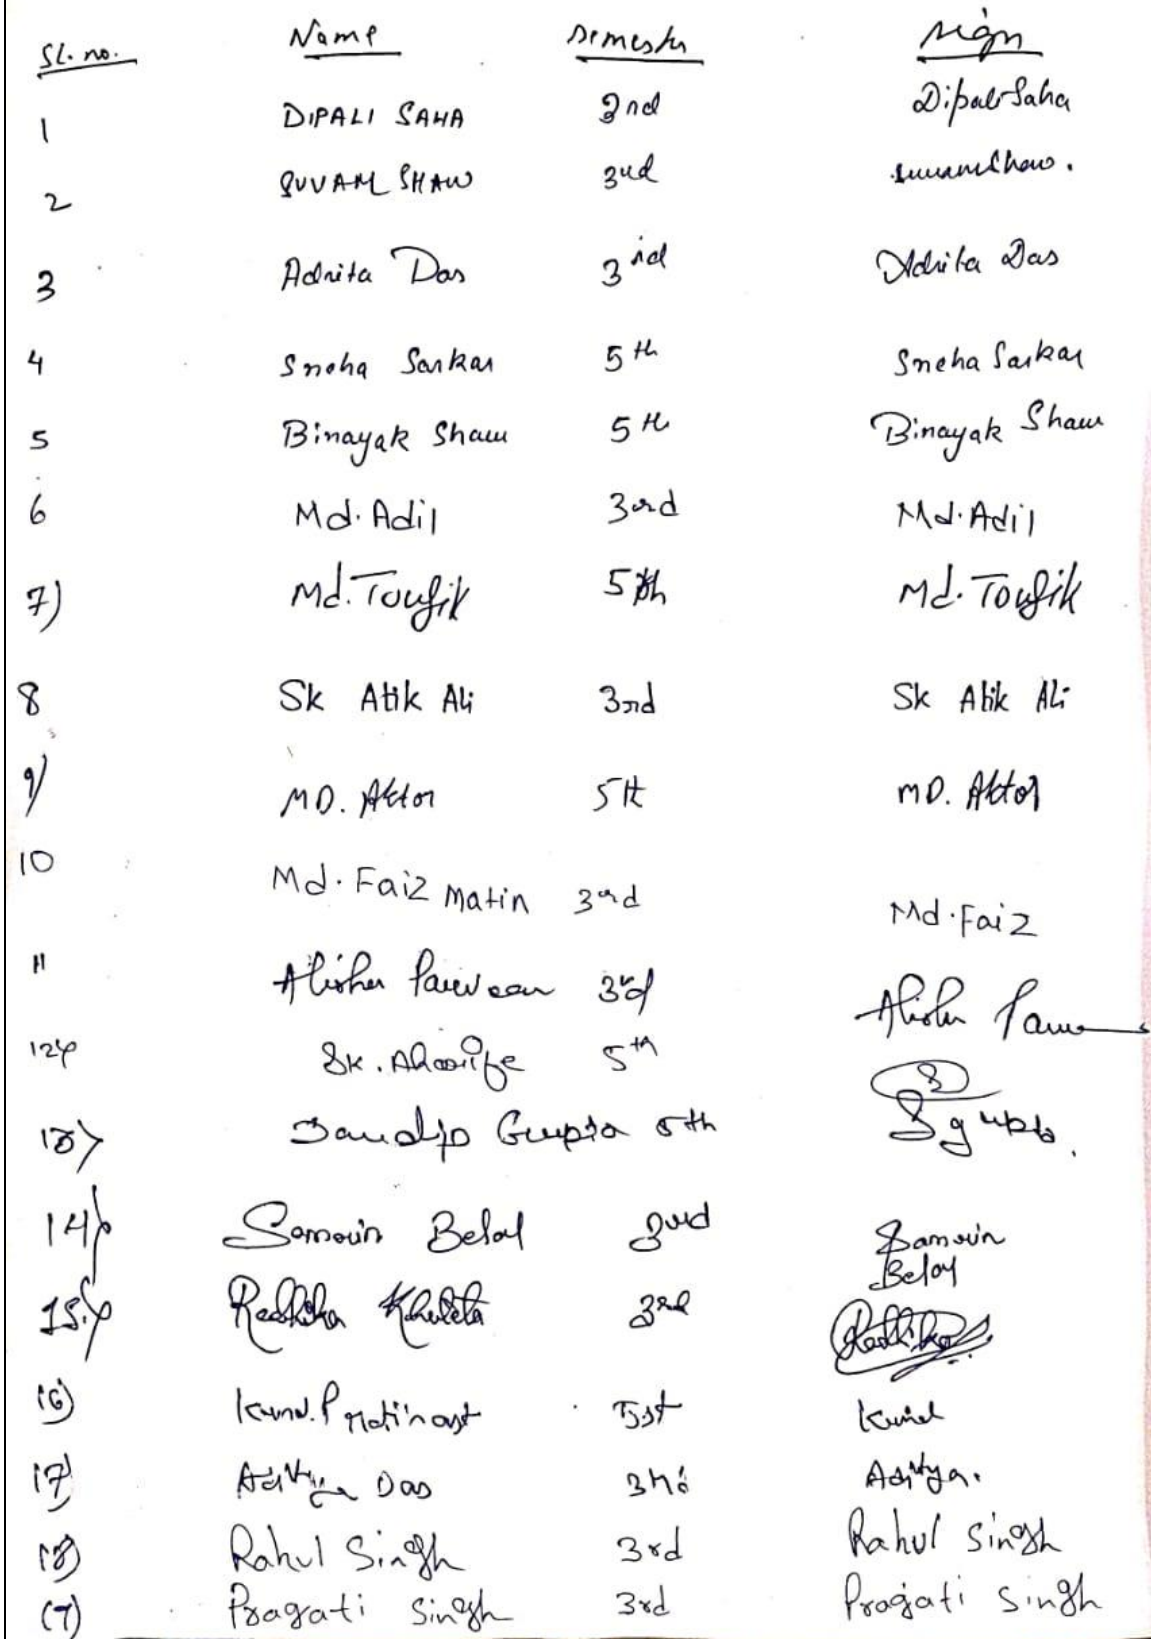 Sl. no. Name Semester Sign
1 DIPALI SAHA 2nd Dipali Saha
2 SUVAM SHAW 3rd Suvam Shaw.
3 Adrita Das 3rd Adrita Das
4 Sneha Sarkar 5th Sneha Sarkar
5 Binayak Shaw 5th Binayak Shaw
6 Md. Adil 3rd Md. Adil
7) Md. Toufik 5th Md. Toufik
8 Sk Atik Ali 3rd Sk Atik Ali
9) MD. Aktar 5th MD. Aktar
10 Md. Faiz Matin 3rd Md. Faiz
11 Alisha Parveen 3rd Alisha
12) Sk. 5th
13) Sandip Gupta 5th Sgupta.
14) 3rd
15) Radhika 3rd Radhika
16)
17) Aditya Das 3rd Aditya.
18) Rahul Singh 3rd Rahul Singh
Pragati Singh 3rd Pragati Singh